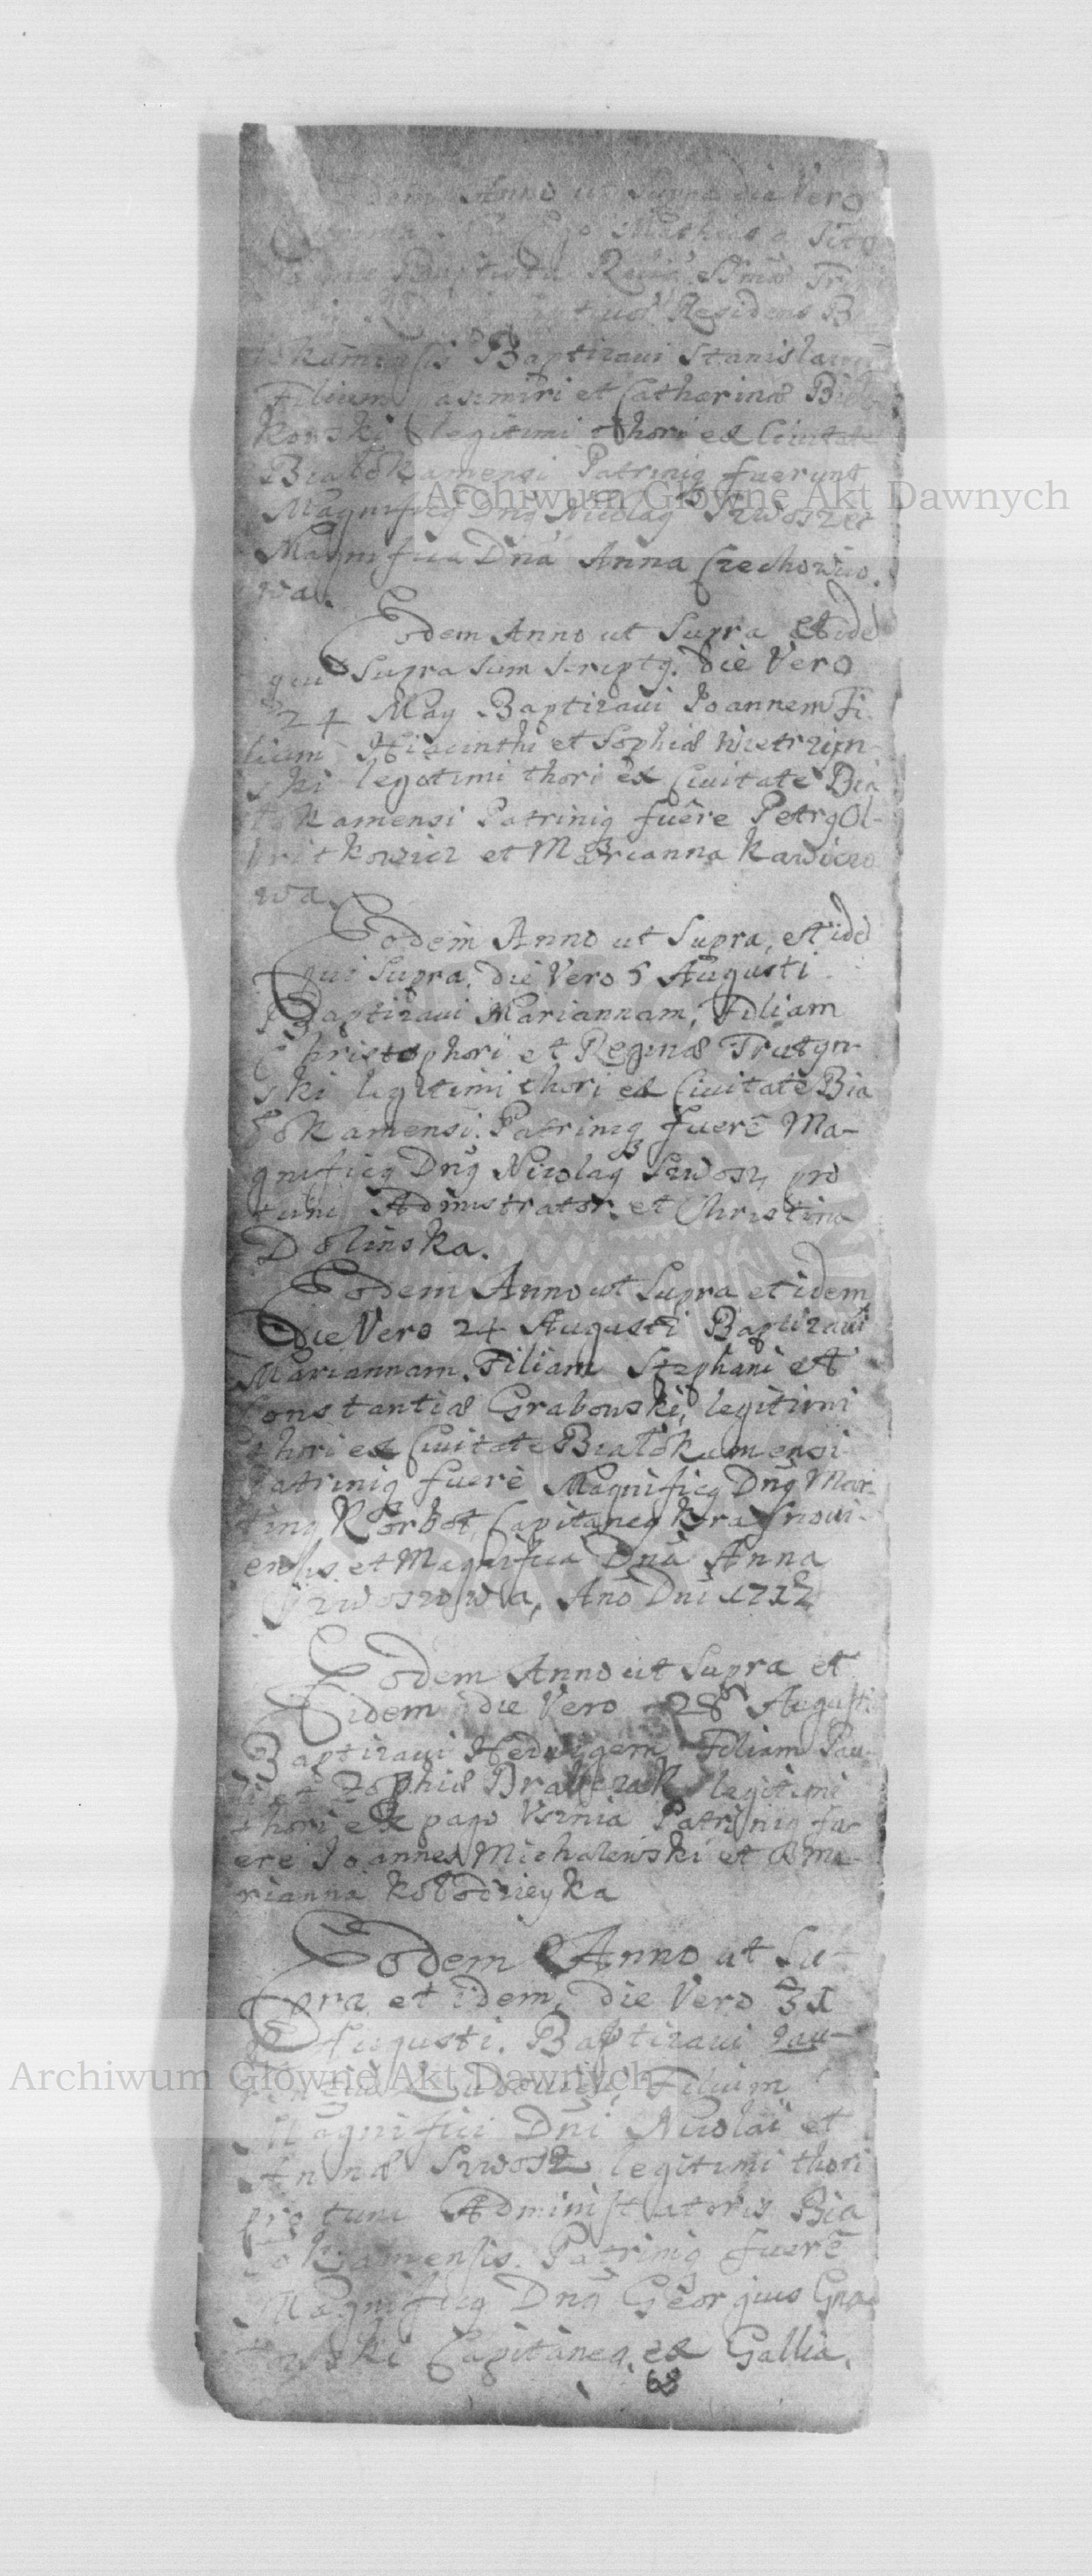 Anno ut Supra die Vero
Ego Mathias a
Baptista
Residens
Baptizavi Stanislaum
Filium Casimiri et Catharinæ
kowski legitimi thori ex Civitate
Białokamensi Patrinig fuerunt
Magnificg Dng Nicolag Szwosz et
Magnifica Dna Anna Czechowico
wa.
Eodem Anno ut Supra Et idē
qui Supra sum Scriptg. die Vero
24 May Baptizavi Joannem Fi
lium Hiacinthi et Sophiæ
ski legitimi thori ex Civitate Bia
łokamensi Patrinig fuêre Petrg Ol-
britkowicz et Marianna Kawiczo
wa.
Eodem Anno ut Supra, et idē
qui Supra, die Vero 5 Augusti
Baptizavi Mariannam, Filiam
Christophori et Reginæ Trusyn-
ski legitimi thori ex Civitate Bia
łokamensi. Patrinig fuerē Ma-
gnificg Dng Nicolag Szwosz, pro
tunc Admistrator. et Christina
Dolinska.
Eodem Anno ut Supra et idem
die Vero 24 Augusti Baptizavi
Mariannam, Filiam Stephani et
Constantiæ Grabowski, legitimi
thori ex Civitate Białokamensi
Patrinig fuerè Magnificg Dng Mar
ting Korbot, Capitaneg Krasnovi-
ensis et Magnifica Dna Anna
Szwoszowa, Ano Dni 1712
Eodem Anno ut Supra et
Eidem die Vero 28 Augusti
Baptizavi Hedvigem Filiam Pau-
li et Zophiæ legitimi
thori ex pago Usznia Patrinig fu-
ere Joannes Michalewski et Ma-
rianna Kołodzieyka
Eodem Anno ut Su-
pra et idem, die Vero 31
Augusti. Baptizavi Lau-
Filium
Magnifici Dni Nicolai et
Annæ Szwosz legitimi thori
pro tunc Administratoris Bia
łokamensis. Patrinig fuerē
Magnificg Dng Georgius Gna
Capitaneg ex Gallia.
68
Archiwum Główne Akt Dawnych
Archiwum Główne Akt Dawnych